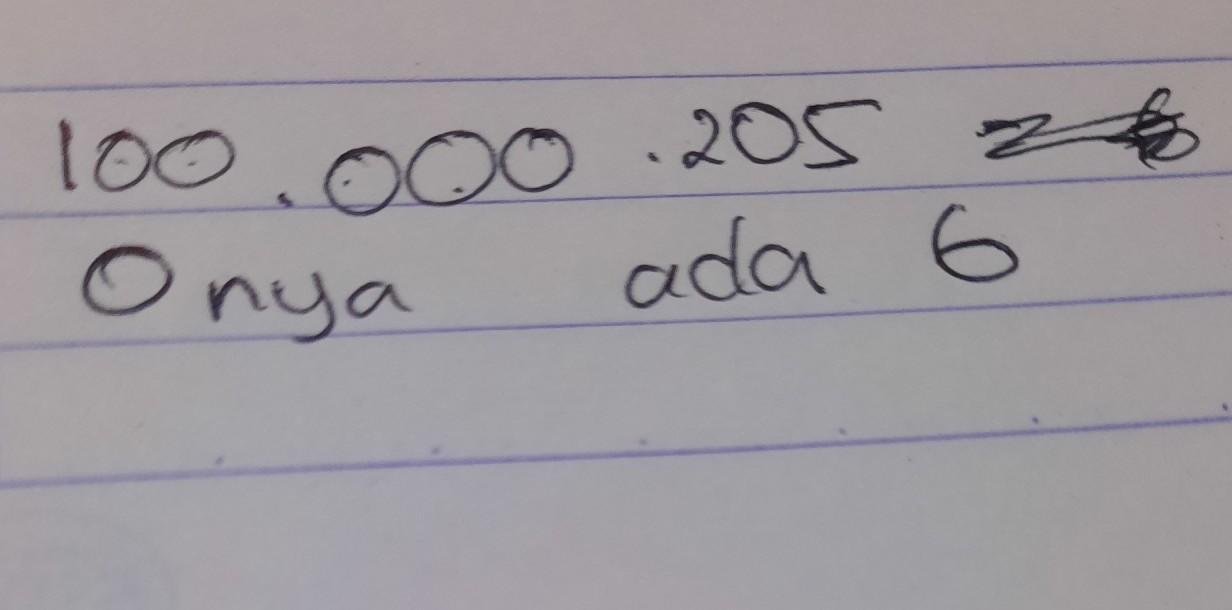 100.000.205
0 nya ada 6